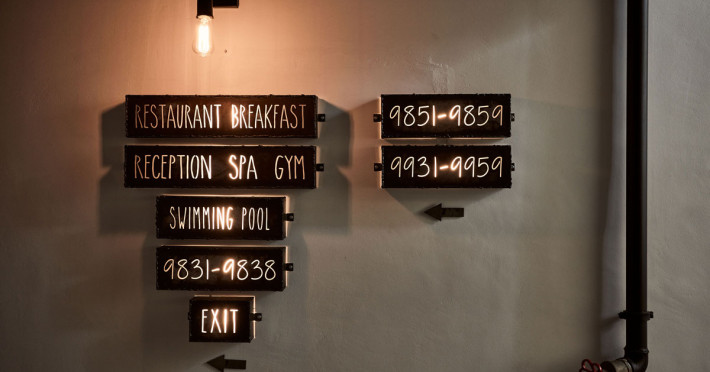 RESTAURANT BREAKFAST
RECEPTION SPA GYM
SWIMMING POOL
9831-9838
EXIT
9851-9859
9931-9959